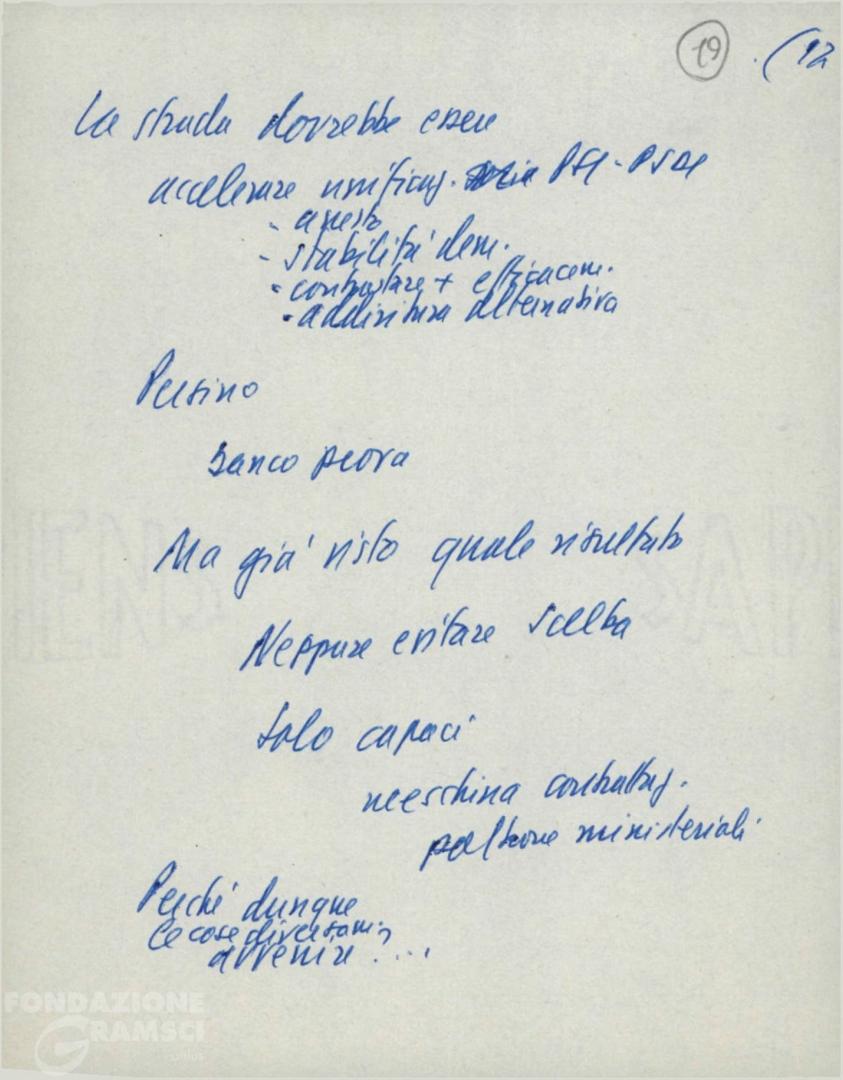 19 (12
La strada dovrebbe essere
accelerare unificaz. PSI - PSDI
- questo
- stabilità dem.
- contrastare + efficacem.
- addirittura alternativa
Persino
banco prova
Ma già visto quale risultato
Neppure evitare Scelba
Solo capaci
meschina contrattaz.
poltrone ministeriali
Perché dunque
le cose diversam.
avvenire ? ...
FONDAZIONE
GRAMSCI